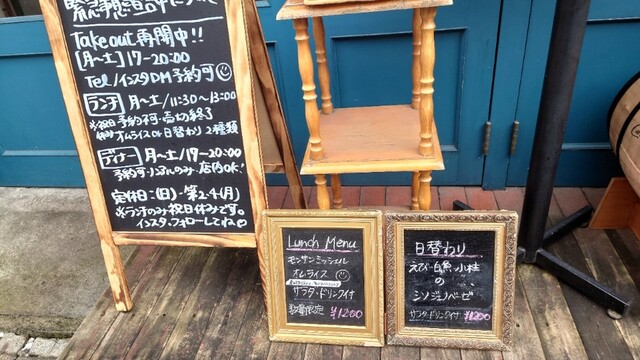 緊急事態宣言について
Takeout 再開中!!
[月〜土]17-20:00
Tel/インスタDM 予約可
ランチ 月〜土/11:30〜13:00
予約不可・売切終了
オムライス or 日替わり 2種類
ディナー 月〜土/17-20:00
予約可・店内OK!
定休日:(日)・第2.4(月)
※ランチのみ祝日休みです。
インスタ、フォローしてね
Lunch Menu
モンサンミッシェル
オムライス
サラダ・ドリンク付
数量限定 ¥1200
日替わり
えび・白魚・小柱
の
ジェノベーゼ
サラダ・ドリンク付 ¥1200